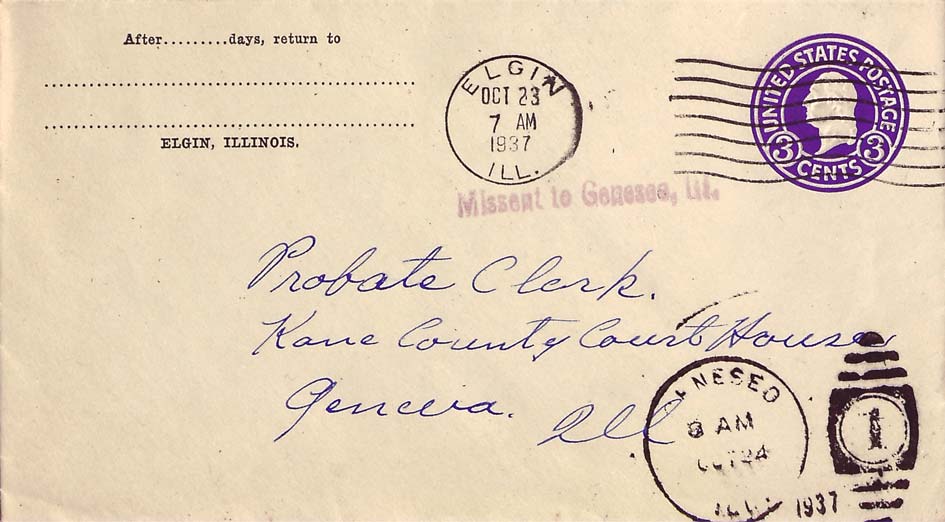 After.........days, return to
ELGIN, ILLINOIS.
ELGIN
OCT 23
7 AM
1937
ILL.
UNITED STATES POSTAGE
3 3
CENTS
Missent to Geneseo, Ill.
Probate Clerk.
Kane County Court House
Geneva. Ill
NESEO
8 AM
OCT 24
ILL. 1937
1